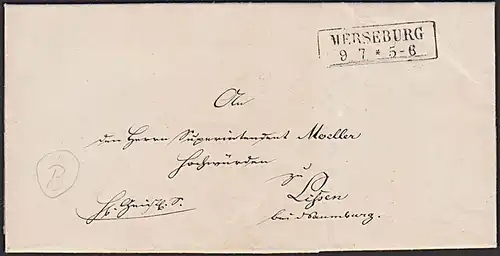 MERSEBURG
9 7 * 5-6
An
den Herrn Superintendent Moeller
Hochwürden
zu
Lissen
bei Naumburg.
B
S.